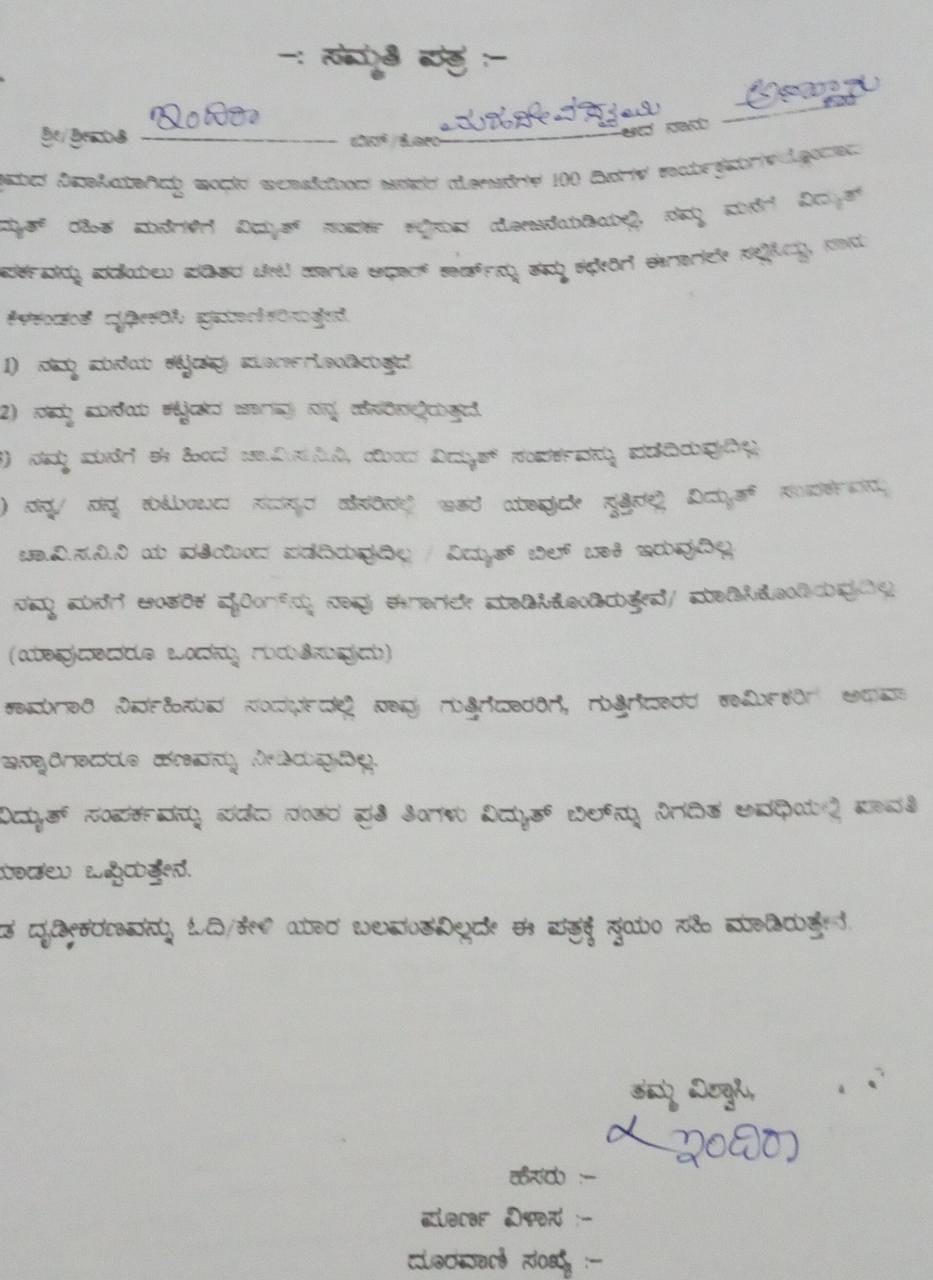 -: ಸಮ್ಮತಿ ಪತ್ರ :-
ಶ್ರೀ/ಶ್ರೀಮತಿ ಇಂದಿರಾ ಬಿನ್/ಕೋಂ ಆದ ನಾನು
ನಿವಾಸಿಯಾಗಿದ್ದು ಇಂಧನ ಇಲಾಖೆಯಿಂದ ಜನಪರ ಯೋಜನೆಗಳ 100 ದಿನಗಳ ಕಾರ್ಯಕ್ರಮಗಳಲ್ಲೊಂದಾದ
ರಹಿತ ಮನೆಗಳಿಗೆ ವಿದ್ಯುತ್ ಸಂಪರ್ಕ ಕಲ್ಪಿಸುವ ಯೋಜನೆಯಡಿಯಲ್ಲಿ, ನಮ್ಮ ಮನೆಗೆ ವಿದ್ಯುತ್
ಪಡೆಯಲು ಪಡಿತರ ಚೀಟಿ ಹಾಗೂ ಆಧಾರ್ ಕಾರ್ಡ್‌ನ್ನು ತಮ್ಮ ಕಛೇರಿಗೆ ಈಗಾಗಲೇ ಸಲ್ಲಿಸಿದ್ದು, ನಾನು
ಕೆಳಕಂಡಂತೆ ದೃಢೀಕರಿಸಿ ಪ್ರಮಾಣೀಕರಿಸುತ್ತೇನೆ.
1) ನಮ್ಮ ಮನೆಯ ಕಟ್ಟಡವು ಪೂರ್ಣಗೊಂಡಿರುತ್ತದೆ
2) ನಮ್ಮ ಮನೆಯ ಕಟ್ಟಡದ ಜಾಗವು ನನ್ನ ಹೆಸರಿನಲ್ಲಿರುತ್ತದೆ.
) ನಮ್ಮ ಮನೆಗೆ ಈ ಹಿಂದೆ ಚಾ.ವಿ.ಸ.ನಿ.ನಿ, ಯಿಂದ ವಿದ್ಯುತ್ ಸಂಪರ್ಕವನ್ನು ಪಡೆದಿರುವುದಿಲ್ಲ
) ನನ್ನ/ ನನ್ನ ಕುಟುಂಬದ ಸದಸ್ಯರ ಹೆಸರಿನಲ್ಲಿ ಇತರೆ ಯಾವುದೇ ಸ್ವತ್ತಿನಲ್ಲಿ ವಿದ್ಯುತ್ ಸಂಪರ್ಕವನ್ನು
ಚಾ.ವಿ.ಸ.ನಿ.ನಿ ಯ ವತಿಯಿಂದ ಪಡೆದಿರುವುದಿಲ್ಲ / ವಿದ್ಯುತ್ ಬಿಲ್ ಬಾಕಿ ಇರುವುದಿಲ್ಲ.
ನಮ್ಮ ಮನೆಗೆ ಆಂತರಿಕ ವೈರಿಂಗ್‌ನ್ನು ನಾವು ಈಗಾಗಲೇ ಮಾಡಿಸಿಕೊಂಡಿರುತ್ತೇವೆ/ ಮಾಡಿಸಿಕೊಂಡಿರುವುದಿಲ್ಲ
(ಯಾವುದಾದರೂ ಒಂದನ್ನು ಗುರುತಿಸುವುದು)
ಕಾಮಗಾರಿ ನಿರ್ವಹಿಸುವ ಸಂದರ್ಭದಲ್ಲಿ ನಾವು ಗುತ್ತಿಗೆದಾರರಿಗೆ, ಗುತ್ತಿಗೆದಾರರ ಕಾರ್ಮಿಕರಿಗೆ ಅಥವಾ
ಇನ್ಯಾರಿಗಾದರೂ ಹಣವನ್ನು ನೀಡಿರುವುದಿಲ್ಲ.
ವಿದ್ಯುತ್ ಸಂಪರ್ಕವನ್ನು ಪಡೆದ ನಂತರ ಪ್ರತಿ ತಿಂಗಳು ವಿದ್ಯುತ್ ಬಿಲ್‌ನ್ನು ನಿಗದಿತ ಅವಧಿಯಲ್ಲಿ ಪಾವತಿ
ಮಾಡಲು ಒಪ್ಪಿರುತ್ತೇನೆ.
ದೃಢೀಕರಣವನ್ನು ಓದಿ/ಕೇಳಿ ಯಾರ ಬಲವಂತವಿಲ್ಲದೇ ಈ ಪತ್ರಕ್ಕೆ ಸ್ವಯಂ ಸಹಿ ಮಾಡಿರುತ್ತೇನೆ.
ತಮ್ಮ ವಿಶ್ವಾಸಿ,
ಇಂದಿರಾ
ಹೆಸರು :-
ಪೂರ್ಣ ವಿಳಾಸ :-
ದೂರವಾಣಿ ಸಂಖ್ಯೆ :-